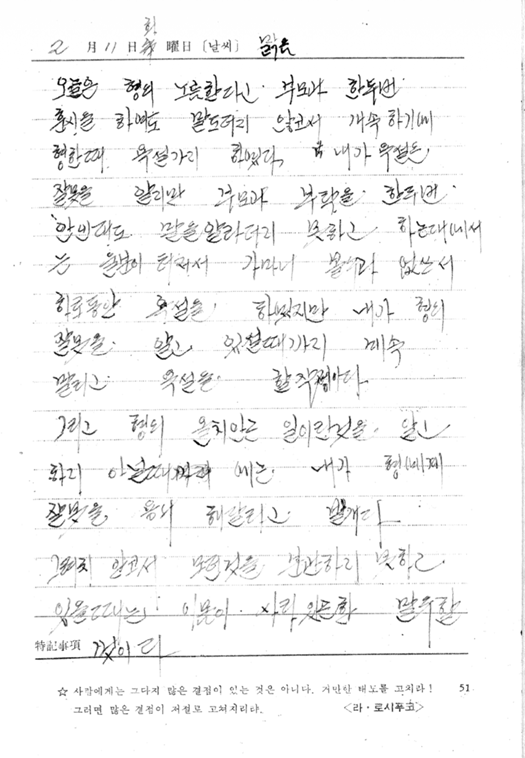 2 月 11 日 화 曜日 〔날씨〕 맑음
오늘은 형의 노름한다고 부모가 한두번
훈시을 하여도 말도터리 않고서 개속 하기에
형한때 욕설가리 하였다. 내가 욕설든
잘못을 알리만 부모가 부탁을 한두번
안인때도 말을알라터리 못하고 하는대에서
는 울분이 터저서 가마니 볼수가 없싼서
하로동안 욕설을 하였지만 내가 형의
잘못을 알고 있설때가리 계속
말리고 욕설을 할작정이다
그리고 형의 올치안은 일이란것을 알고
하리 아닐때 에는 내가 형에께
잘못을 용서 해달리고 빌개다
그렇치 안코서 모든것을 보관하리 못하고
있을때는 이몸이 사라 있는한 말우할
特記事項 것이다
☆ 사람에게는 그다지 많은 결점이 있는 것은 아니다. 거만한 태도를 고치라!
그러면 많은 결점이 저절로 고쳐지리라. <라・로시푸코>
51